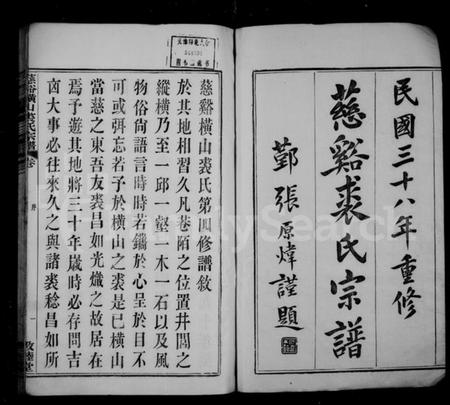 民國三十八年重修
慈谿裘氏宗譜
鄞張原煒謹題
慈谿橫山裘氏第四修譜敘
於其地相習久凡巷陌之位置井閭之
縱橫乃至一邱一壑一木一石以及風
物俗尚語言時時若鐫於心呈於目不
可或弭忘若予於橫山之裘是已橫山
當慈之東吾友裘昌如光熾之故居在
焉予遊其地將三十年歲時必存問吉
凶大事必往來久之與諸裘稔昌如所
慈谿橫山裘氏宗譜
卷
序
一
敦睦堂
FamilySearch